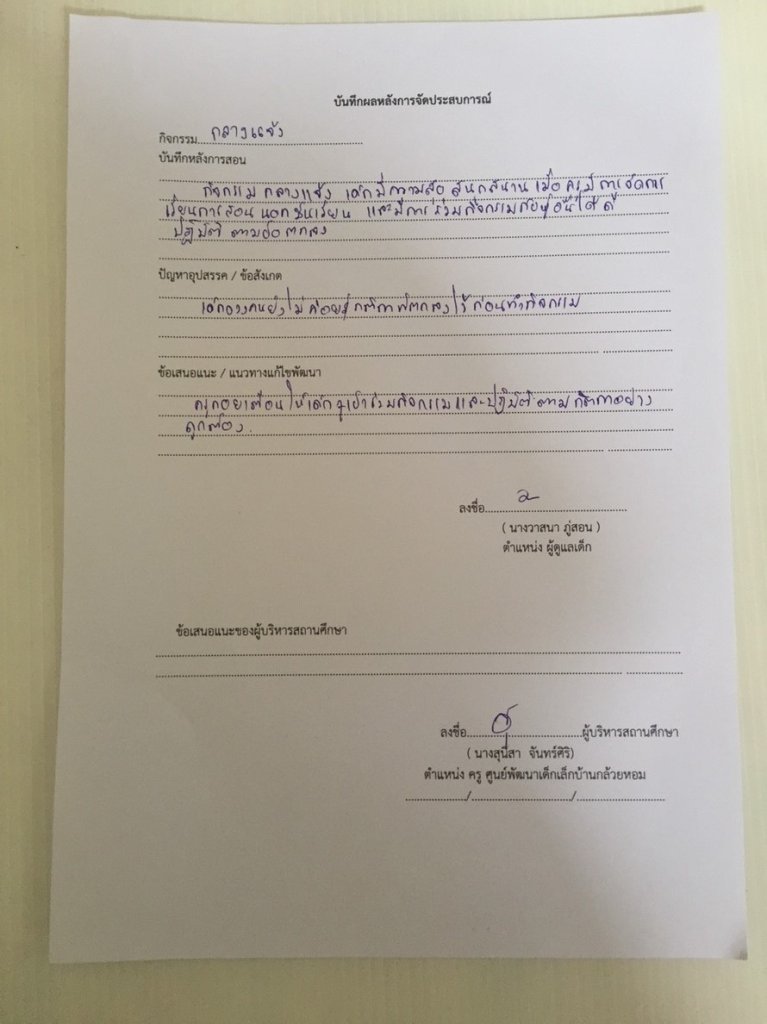 บันทึกผลหลังการจัดประสบการณ์
กิจกรรม กลางแจ้ง
บันทึกหลังการสอน
กิจกรรม กลางแจ้ง เด็กมีความ สนุกสนาน เมื่อ ครูมี การจัดการ
เรียนการสอน นอกชั้นเรียน และมีการร่วมกิจกรรมกับผู้อื่นได้ดี
ปฏิบัติ ตามข้อตกลง
ปัญหาอุปสรรค / ข้อสังเกต
เด็กบางคนยังไม่ค่อยรู้กติกาที่ตกลงไว้ก่อนทำกิจกรรม
ข้อเสนอแนะ / แนวทางแก้ไขพัฒนา
ครูคอยเตือนให้เด็ก เข้าร่วมกิจกรรมและปฏิบัติตามกติกาอย่าง
ถูกต้อง.
ลงชื่อ
( นางวาสนา ภู่สอน )
ตำแหน่ง ผู้ดูแลเด็ก
ข้อเสนอแนะของผู้บริหารสถานศึกษา
ลงชื่อ ผู้บริหารสถานศึกษา
( นางสุนีสา จันทร์ศิริ)
ตำแหน่ง ครู ศูนย์พัฒนาเด็กเล็กบ้านกล้วยหอม
/ /